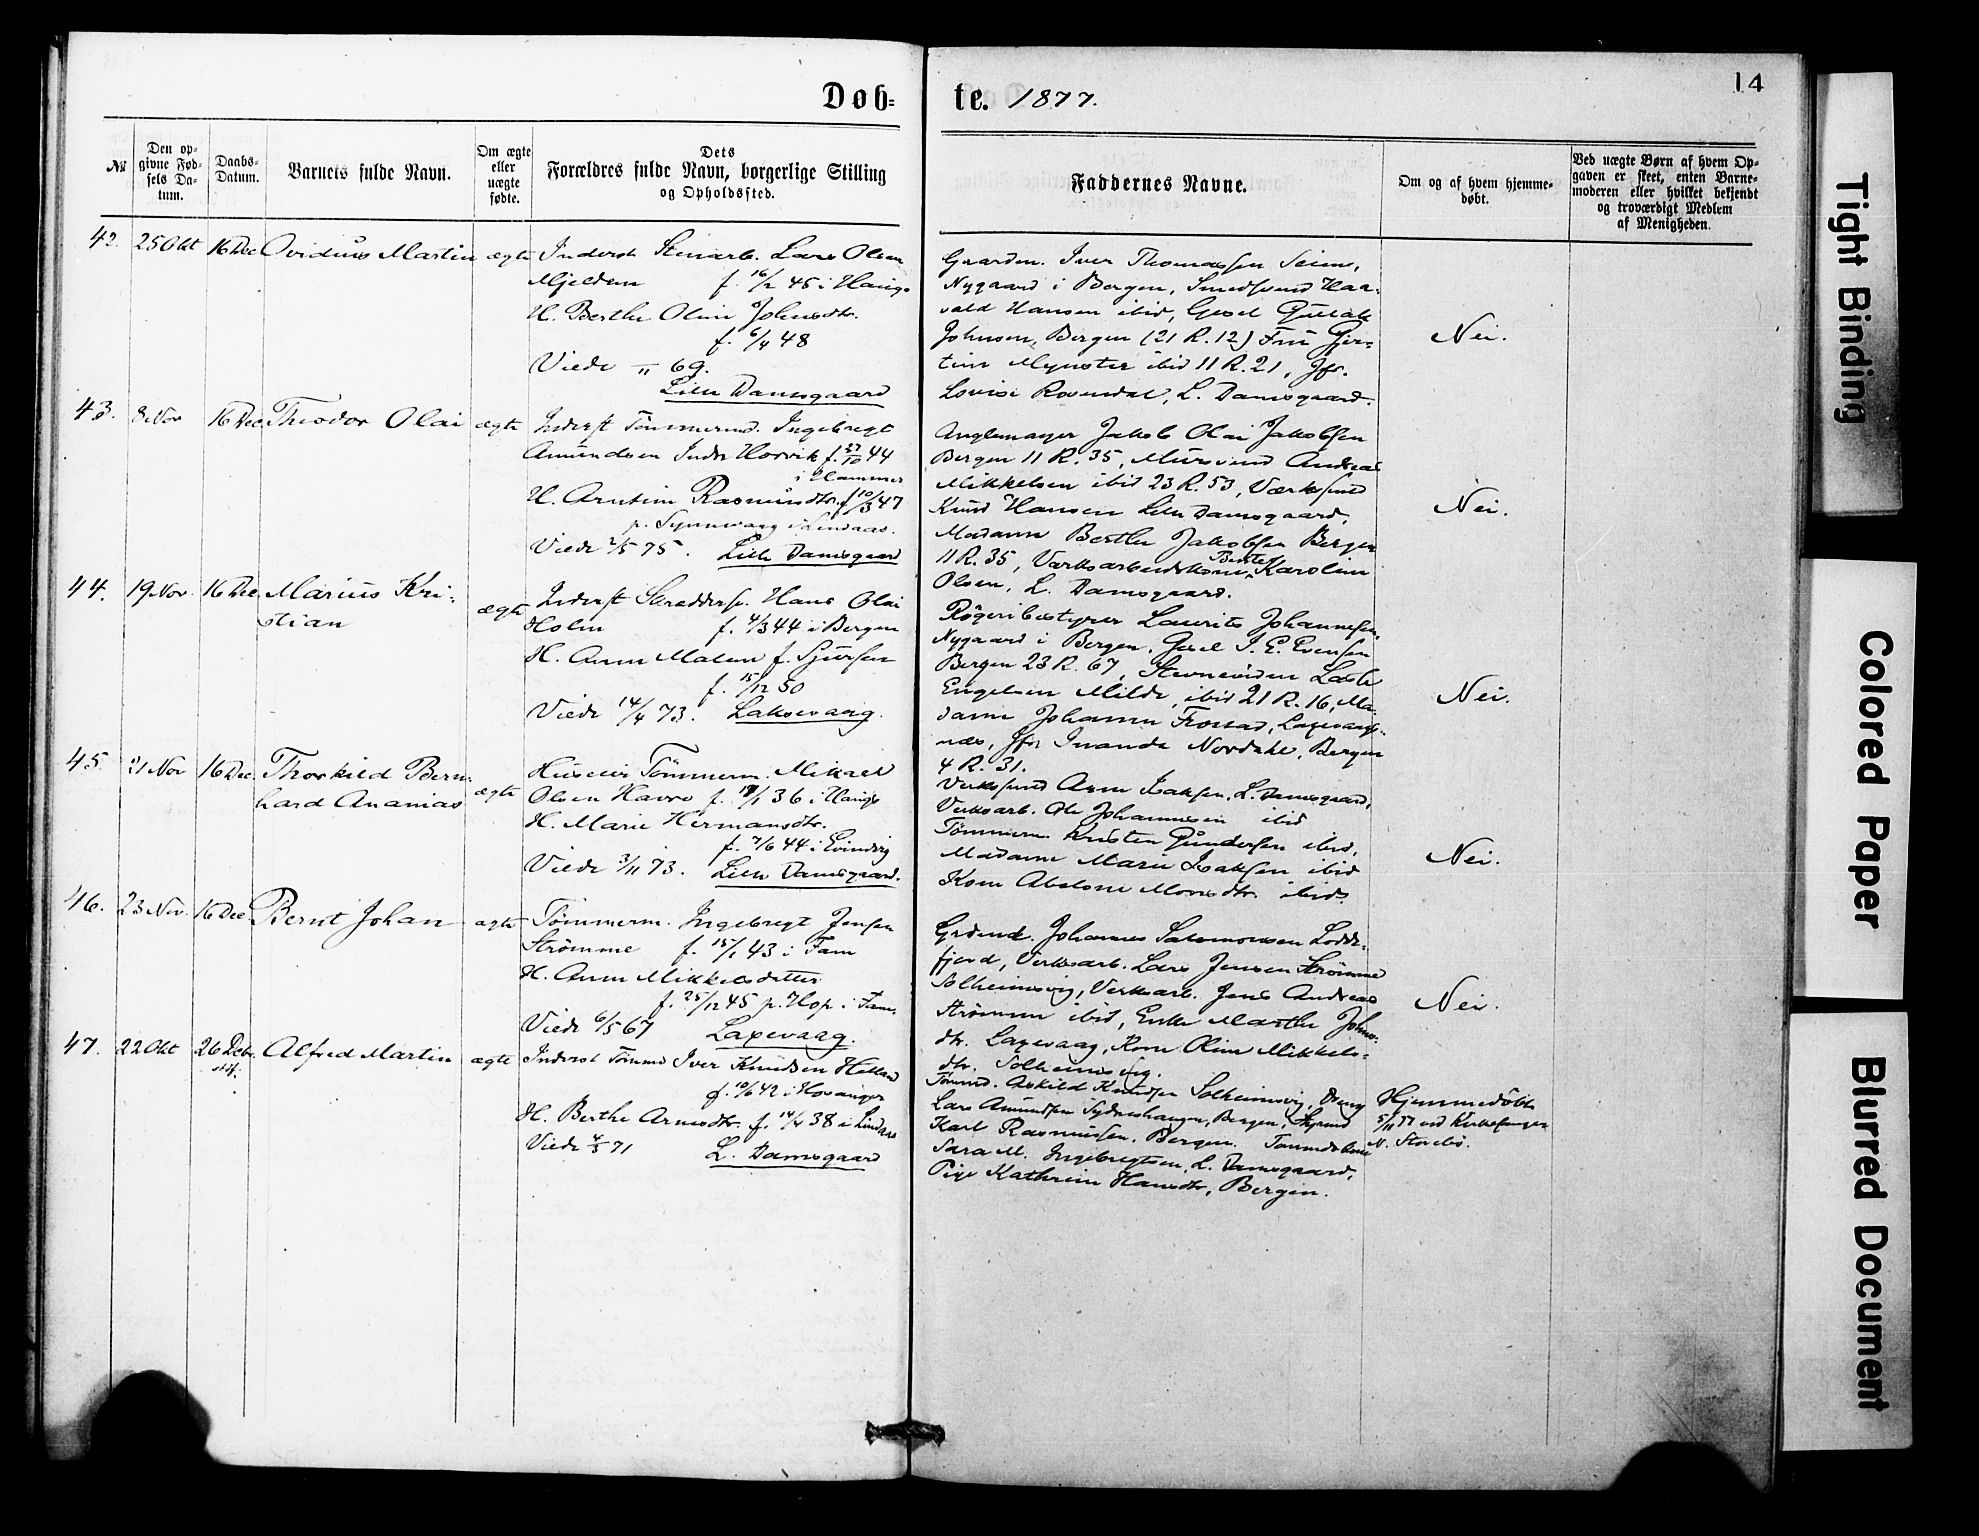 Døb=
te. 1877.
14
№
Den op-
givne Fød-
sels Da-
tum.
Daabs-
Datum.
Barnets fulde Navn.
Om ægte
eller
uægte
fødte.
Dets
Forældres fulde Navn, borgerlige Stilling
og Opholdssted.
Faddernes Navne.
Om og af hvem hjemme-
døbt.
Ved uægte Børn af hvem Op-
gaven er skeet, enten Barne-
moderen eller hvilket bekjendt
og troværdigt Medlem
af Menigheden.
42. 25 Okt 16 Dec Ovidius Martin ægte
Inderst Stenarb. Lars Olsen
Mjeldem f. 16/2 45 i Haugs
H. Berthe Oline Johnsdtr.
f. 6/4 48
Viede " 69.
Lille Damsgaard
Gaarden. Iver Thomassen Seim,
Nygaard i Bergen, Smedsvend Haa-
vald Hansen ibid, Gesel Gullak
Johnsen, Bergen (21 R. 12) Fru Gjer-
tine Mynster ibid 11 R. 21, Jfr.
Lovise Rosendal, L. Damsgaard.
Nei.
43. 8 Nov 16 Dec Theodor Olai ægte
Inderst Tømmermd. Ingebregt
Amundsen Indr Horvik f. 27/10 44
i Hammer
H. Arntine Rasmusdtr. f. 10/3 47
p. Synnevaag i Lindaas.
Viede 2/5 75. Lille Damsgaard
Jakob Olai Jakobsen
Bergen 11 R. 35, Mursvend Andreas
Mikkelsen ibid 23 R. 53, Værksmed
Knud Hansen Lille Damsgaard,
Madame Berthe Jakobsen Bergen
11 R. 35, Værksarbeiderkone Karoline
Olsen, L. Damsgaard.
Nei.
44. 19 Nov 16 Dec Marius Kri-
stian
ægte
Inderst Skræddersv. Hans Olai
Holm f. 4/3 44 i Bergen
H. Anne Malene f. Sjursen
f. 15/12 50
Viede 14/4 73. Laksevaag.
Røgeribestyrer Laurits Johannesen,
Nygaard i Bergen, Gesel I. E. Evensen
Bergen 23 R. 67, Stevnevidne Lasse
Engelsen Milde, ibid 21 R. 16, Ma-
dame Johanne Frostad, Laxevaags-
næs, Jfr Inanda Nordahl, Bergen
4 R. 31.
Nei.
45. 21 Nov 16 Dec. Thorkild Bern-
hard Ananias
ægte
Huseier Tømmerm. Mikael
Olsen Havre f. 1/1 36 i Haugs
H. Marie Hermansdtr.
f. 7/6 44 i Evindvig
Viede 3/11 73. Lille Damsgaard.
Verksmd Arne Isaksen, L. Damsgaard,
Verksarb. Ole Johannesen ibid
Tømmerm. Kristen Gundersen ibid,
Madame Marie Isaksen ibid
Kone Abelone Monsdtr. ibid.
Nei.
46. 23 Nov. 16 Dec Bernt Johan ægte
Tømmerm. Ingebregt Jensen
Strømme f. 15/1 43 i Fane
H. Anne Mikkelsdatter
f. 25/12 45 p. Hop i Fane.
Viede 6/5 67 Laxevaag.
Grdmd. Johannes Salomonsen Lodde-
fjord, Verksarb. Lars Jensen Strømme
Solheimsvig, Verksarb. Jens Andreas
Strømme ibid, Enke Marthe Johns-
dtr. Laxevaag, Kone Oline Mikkels-
dtr. Solheimsvig.
Nei.
47. 22 Okt 26 Debr. Alfred Martin ægte
Inderst Tømmd Iver Knudsen Helland
f. 10/6 42 i Mosanger
H. Berthe Arnesdtr. f. 14/4 38 i Lindaas
Viede 4/3 71 L. Damsgaard
Tømmd. Askild Knudsen Solheimsvig, Dreng
Lars Amundsen Sydneshaugen, Bergen,
Karl Rasmussen, Bergen. Tømmdskone
Sara M. Ingebregtsen, L. Damsgaard,
Pige Kathrine Hansdtr, Bergen.
Hjemmedøbt
5/11 77 ved Kirkesanger
N. Storebø.
Tight Binding
Colored Paper
Blurred Document